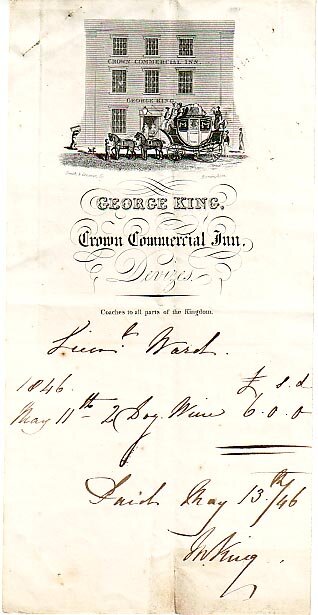 CROWN COMMERCIAL INN.
GEORGE KING
GEORGE KING.
Crown Commercial Inn.
Devizes.
Coaches to all parts of the Kingdom.
Lieut. Ward.
1846. £ s. d
May 11th 2 Doz. Wine 6. 0. 0
Paid May 13th/46
King.